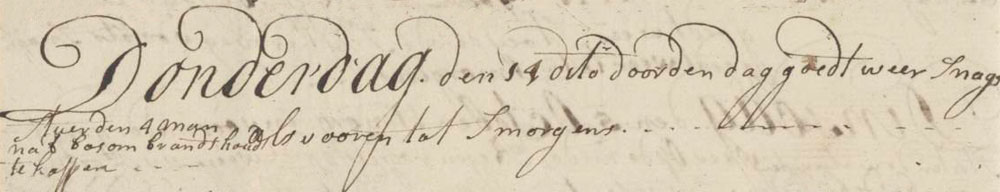 Donderdag. den 14 dito door den dag goedt weer Snags
Als vooren tot Smorgens. . . .
Stuerden 4 man
na t bos om brandthoudt
te kappen